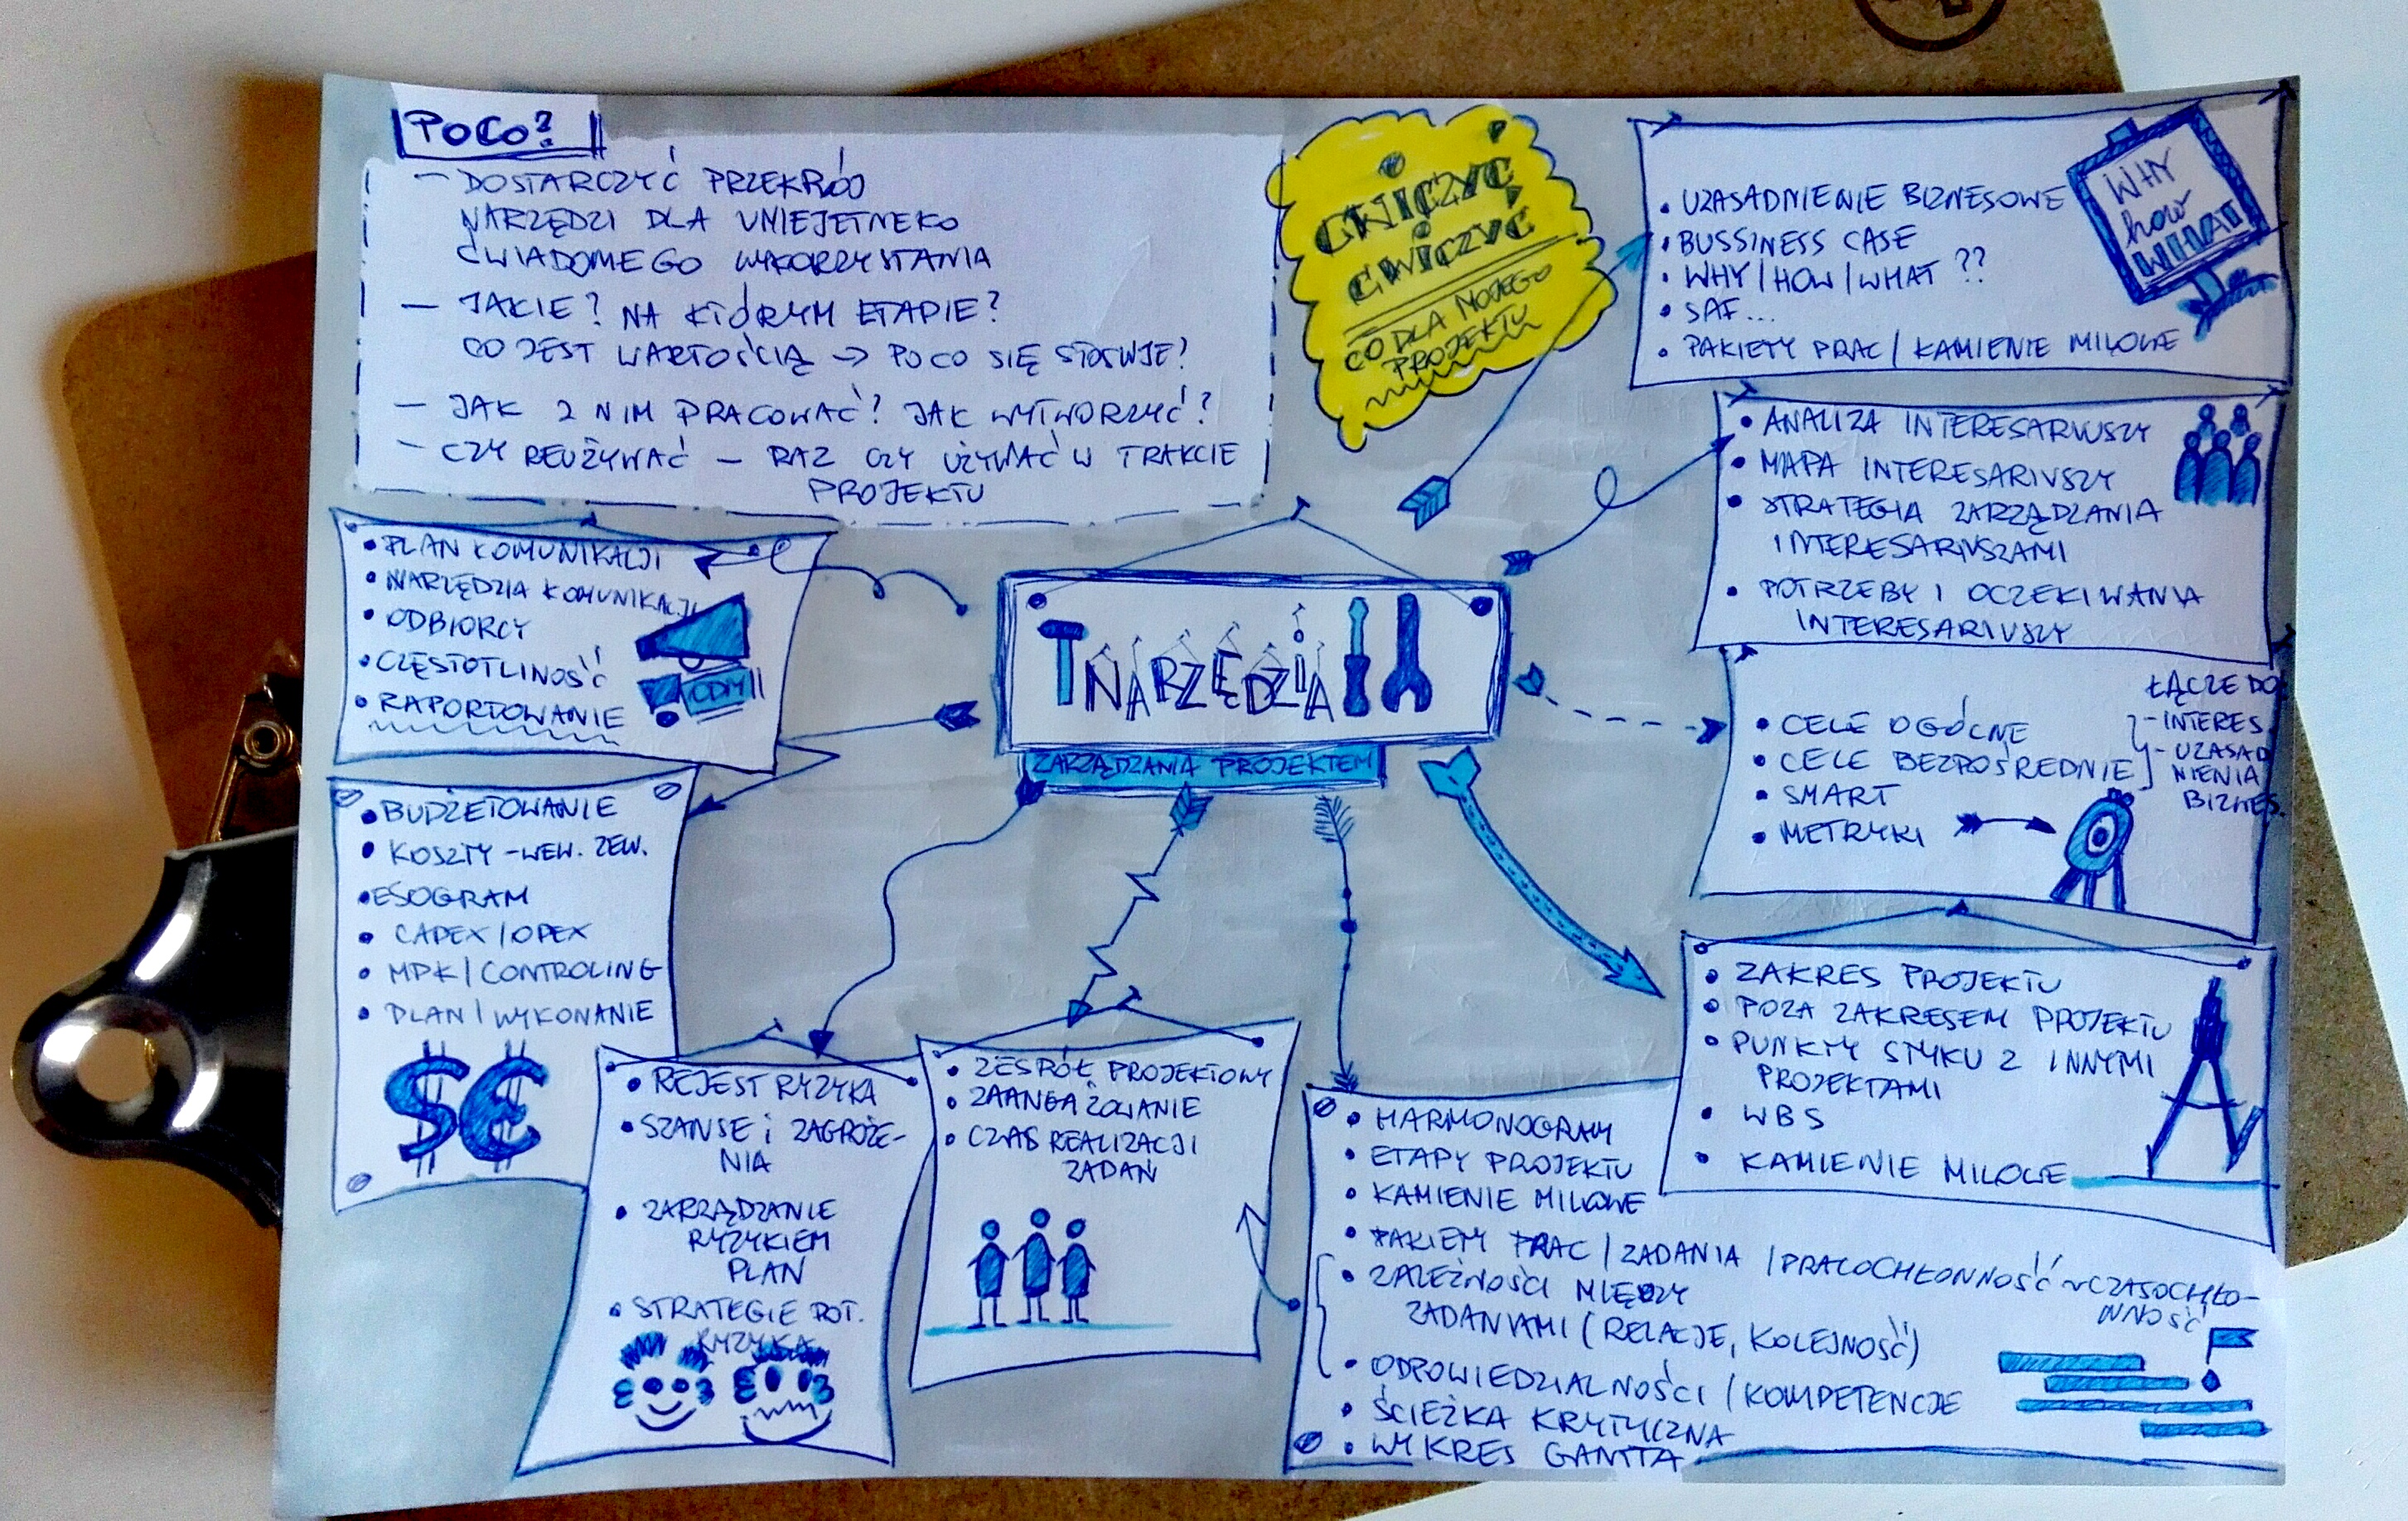 PO CO?
- DOSTARCZYĆ PRZEKRÓJ
NARZĘDZI DLA UMIEJETNEKO
ŚWIADOMEGO WYKORZYSTANIA
- JAKIE? NA KTÓRYM ETAPIE?
CO JEST WARTOŚCIĄ → PO CO SIĘ STOSUJE?
- JAK Z NIM PRACOWAĆ? JAK WYTWORZYĆ?
- CZY REUŻYWAĆ - RAZ CZY UŻYWAĆ W TRAKCIE
PROJEKTU
ĆWICZYĆ
ĆWICZYĆ
CO DLA MOJEGO
PROJEKTU
• UZASADNIENIE BIZNESOWE
• BUSSINESS CASE
• WHY/HOW/WHAT ??
• SAF...
• PAKIETY PRAC / KAMIENIE MILOWE
WHY
how
WHAT
• ANALIZA INTERESARIUSZY
• MAPA INTERESARIUSZY
• STRATEGIA ZARZĄDZANIA
INTERESARIUSZAMI
• POTRZEBY I OCZEKIWANIA
INTERESARIUSZY
• CELE OGÓLNE
• CELE BEZPOŚREDNIE
• SMART
• METRYKI
ŁĄCZE DO
- INTERES.
- UZASAD
NIENIA
BIZNES.
• PLAN KOMUNIKACJI
• NARZĘDZIA KOMUNIKACJI
• ODBIORCY
• CZĘSTOTLINOŚĆ
• RAPORTOWANIE
NARZĘDZIA
ZARZĄDZANIA PROJEKTEM
• BUDŻETOWANIE
• KOSZTY - WEW. ZEW.
• ESOGRAM
• CAPEX/OPEX
• MPK/CONTROLING
• PLAN/WYKONANIE
$€
• REJEST RYZYKA
• SZANSE i ZAGROŻE-
NIA
• ZARZĄDZANIE
RYZYKIEM
PLAN
• STRATEGIE POT.
RYZYKA
• ZESPÓŁ PROJEKTOWY
• ZAANGAŻOWANIE
• CZAS REALIZACJI
ZADAŃ
• ZAKRES PROJEKTU
• POZA ZAKRESEM PROJEKTU
• PUNKTY STYKU Z INNYMI
PROJEKTAMI
• WBS
• KAMIENIE MILOWE
• HARMONOGRAM
• ETAPY PROJEKTU
• KAMIENIE MILOWE
• PAKIETY PRAC / ZADANIA / PRACOCHŁONNOŚĆ ~ CZASOCHŁO-
NNOŚĆ
• ZALEŻNOŚCI MIĘDZY
ZADANIAMI (RELACJE, KOLEJNOŚĆ)
• ODPOWIEDZIALNOŚCI / KOMPETENCJE
• ŚCIEŻKA KRYTYCZNA
• WYKRES GANTTA